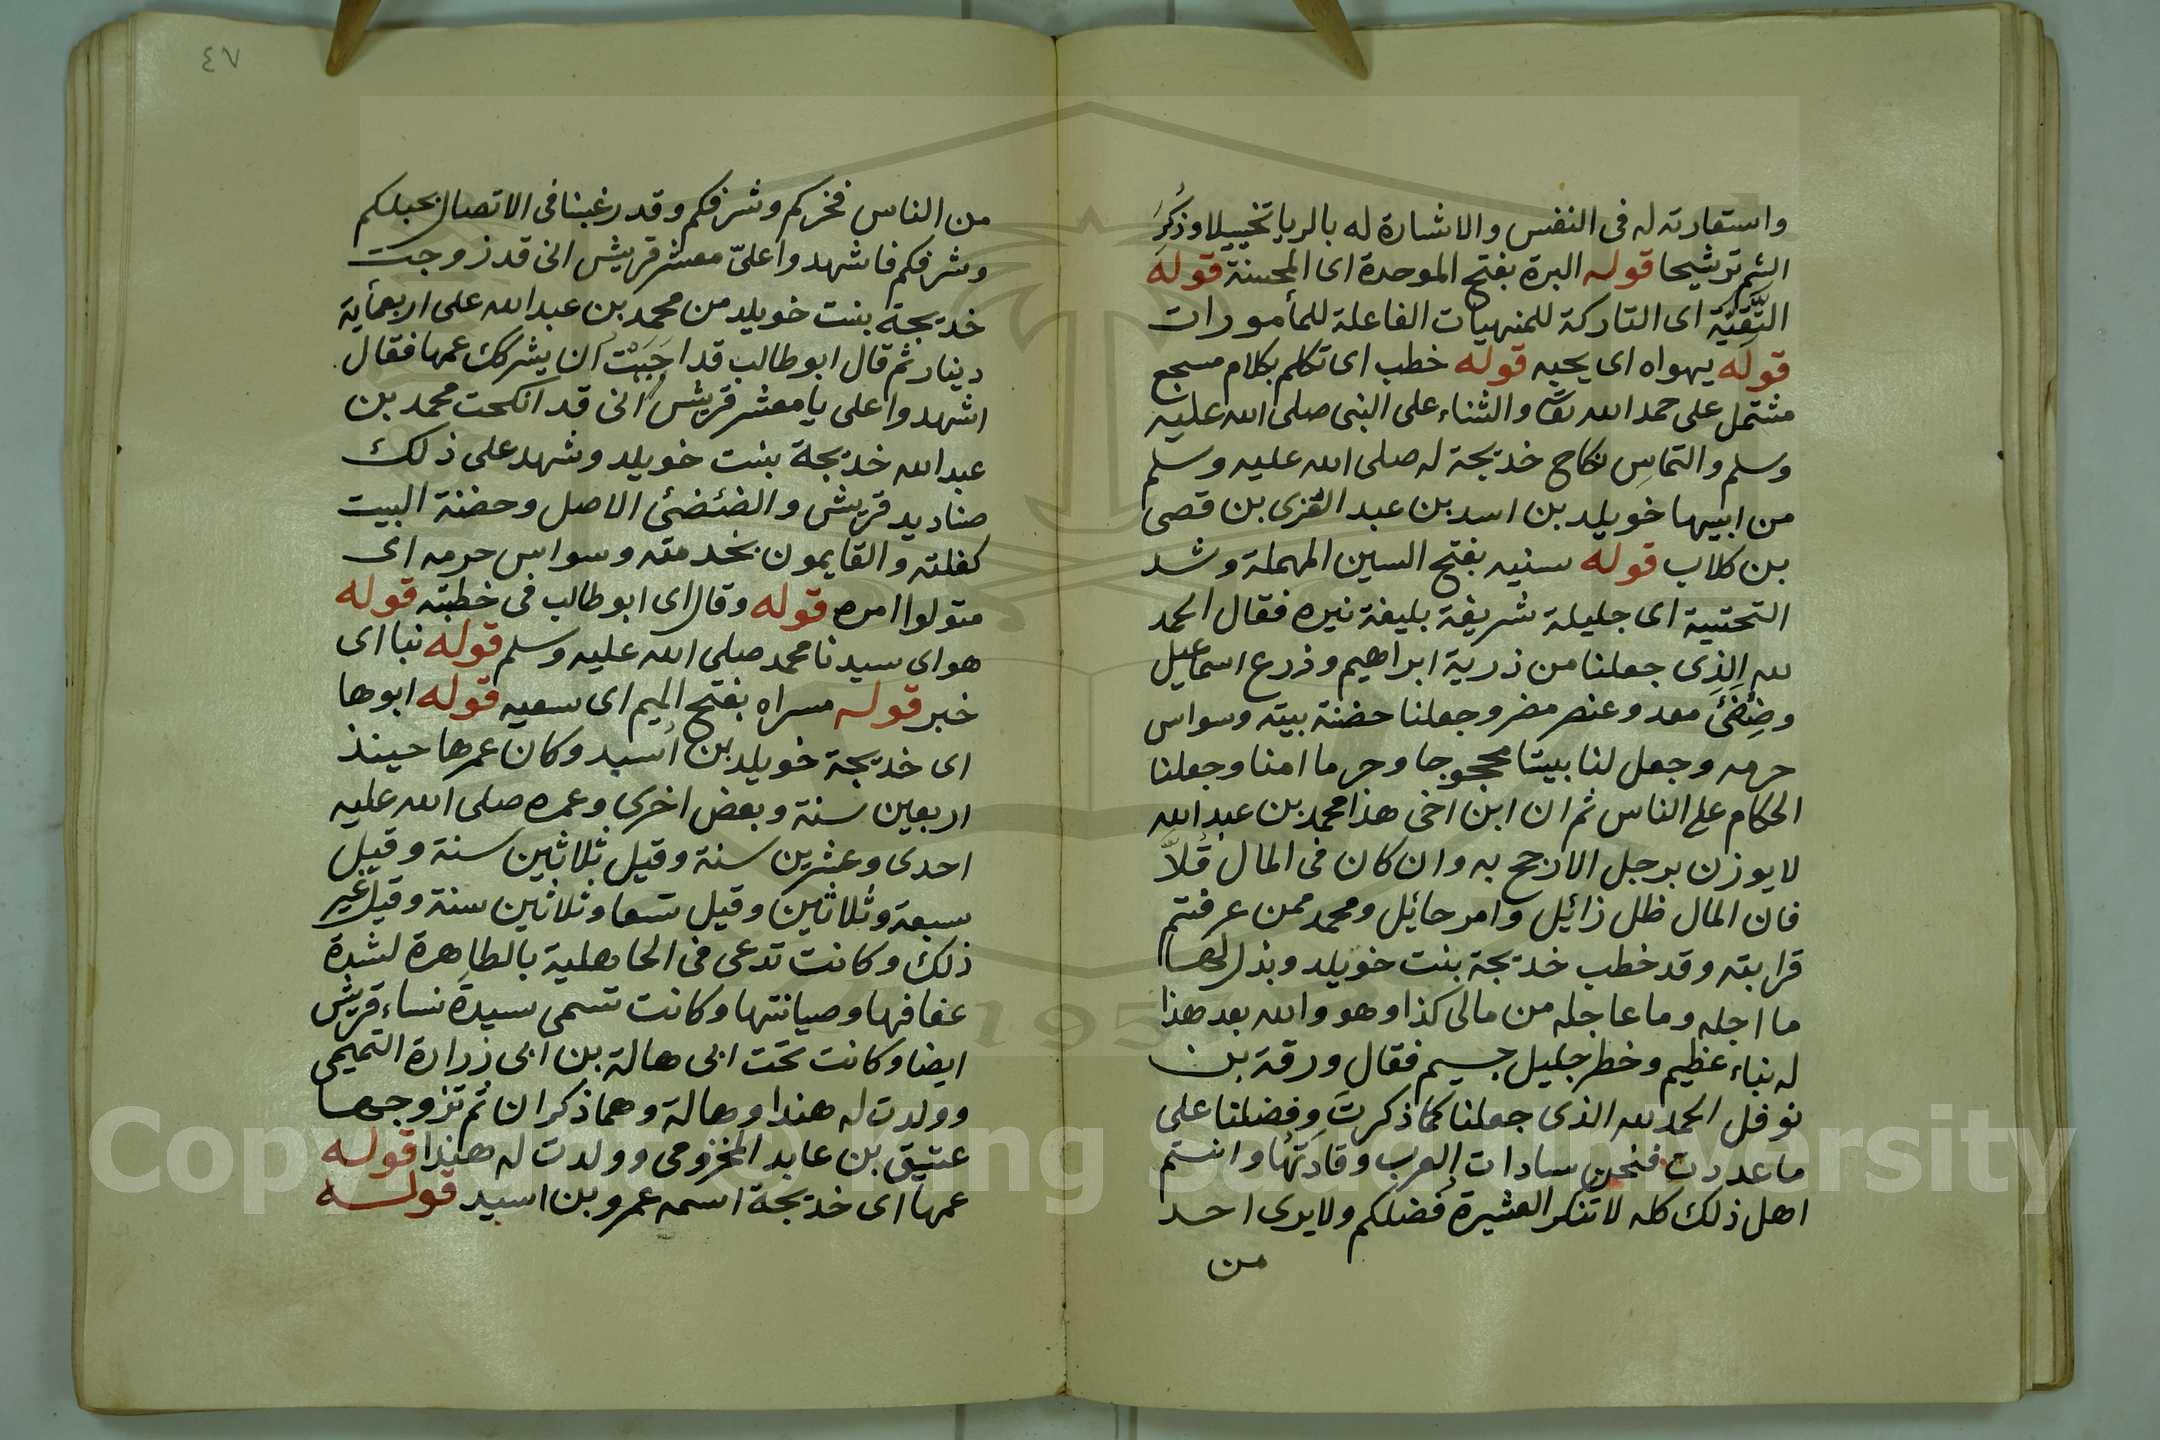 واستعارته له فى النفس والاشارة له بالريا تخييلا وذُكِرَ
الشم ترشيحا قوله البرة بفتح الموحدة اى المحسنة قوله
التَّقِيَّة اى التاركة للمنهيات الفاعلة للمأمورات
قوله يهواه اى يحبه قوله خطب اى تكلم بكلام مسجع
مشتمل على حمد الله تعا والثناء على النبى صلى الله عليه
وسلم والتماسِ نكاح خديجة له صلى الله عليه وسلم
من ابيها خويلد بن اسد بن عبد العُزى بن قصى
بن كلاب قوله سنيه بفتح السين المهملة وشد
التحتية اى جليلة شريفة بليغة نيره فقال الحمد
لله الذِى جعلنا من ذرية ابراهيم وذرع اسماعيل
وضِئضَئَ معد وعنصر مضر وجعلنا حضنة بيته وسواس
حرمه وجعل لنا بيتا محجوجا وحرما امنا وجعلنا
الحكام على الناس ثم ان ابن اخى هذا محمد بن عبد الله
لا يوزن برجل الا رجح به وان كان فى المال قُلاًّ
فان المال ظل زائيل وامر حائيل ومحمد ممن عرفتم
قرابته وقد خطب خديجة بنت خويلد وبذل لها
ما اجله وما عاجله من مالى كذا وهو والله بعد هذا
له نباء عظيم وخطر جليل جسيم فقال ورقة بن
نوفل الحمد لله الذى جعلنا كما ذكرتَ وفضلنا على
ما عددت فنحن سادات العرب وقادَتُها وانتم
اهل ذلك كله لا تنكر العشيرة فضلكم ولا يرى احد
من
٤٧
من الناس فخركم وشرفكم وقد رغبنا فى الاتصال بحبلكم
وشرفكم فاشهدوا علىّ معشر قريش انى قد زوجت
خديجة بنت خويلد من محمد بن عبد الله على اربعمأية
دينار ثم قال ابو طالب قد احَبَبْت ان يشركك عمها فقال
اشهدوا على يا معشر قريش انى قد انكحت محمد بن
عبد الله خديجة بنت خويلد وشهد على ذلك
صناديد قريش والضئضئ الاصل وحضنة البيت
كفلته والقايمون بخدمته وسواس حرمه اى
متولوا امره قوله وقال اى ابو طالب فى خطبته قوله
هو اى سيدنا محمد صلى الله عليه وسلم قوله نبا اى
خبر قوله مسراه بفتح الميم اى سعيه قوله ابوها
اى خديجة خويلد بن اسيد وكان عمرها حينذ
اربعين سنة وبعض اخرى وعمره صلى الله عليه
احدى وعشرين سنة وقيل ثلاثين سنة وقيل
سبعة وثلاثين وقيل تسعا وثلاثين سنة وقيل غير
ذلك وكانت تدعى فى الجاهلية بالطاهرة لشدة
عفافها وصيانتها وكانت تسمى سيدة نساء قريش
ايضا وكانت تحت ابى هالة بن ابى زرارة التميمى
وولدت له هندا وهالة وهما ذكران ثم تزوجها
عتيق بن عابد المخزومى وولدت له هندا قوله
عمها اى خديجة اسمه عمرو بن اسيد قوله
Copyright © King Saud University
1957